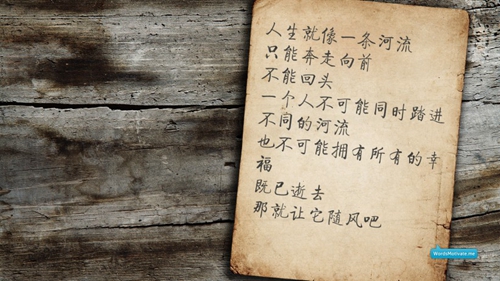 人生就像一条河流
只能奔走向前
不能回头
一个人不可能同时踏进
不同的河流
也不可能拥有所有的幸
福
既已逝去
那就让它随风吧
WordsMotivate.me